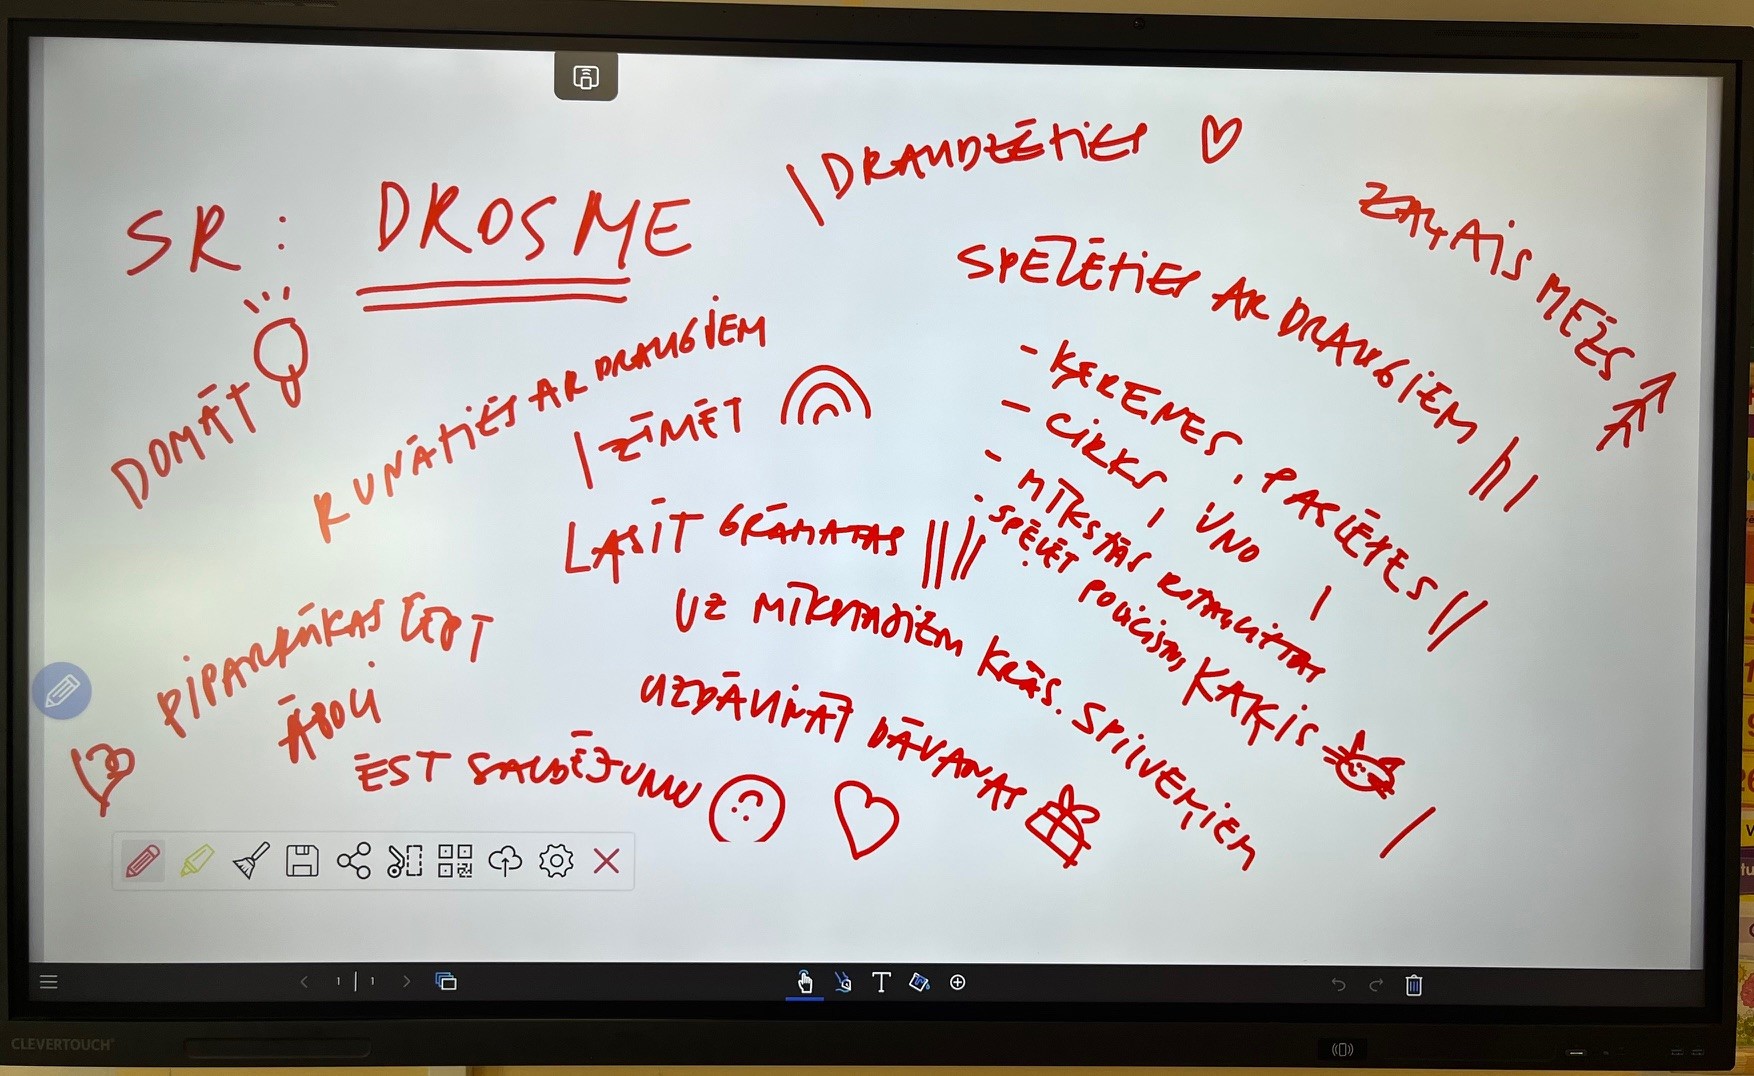 SR: DROSME
DRAUDZĒTIES
ZAĻAIS MEŽS
SPĒLĒTIES AR DRAUGIEM
- ĶERENES, PASLĒPES
- CIRKS, UNO
- MĪKSTĀS ROTAĻLIETAS
- SPĒLĒT POLICISTOS
KAĶIS
DOMĀT
RUNĀTIES AR DRAUGIEM
ZĪMĒT
LASĪT GRĀMATAS
UZ MĪKSTAJIEM KRĀS. SPILVENIEM
UZDĀVINĀT DĀVANAS
PIPARKŪKAS CEPT
ĀBOLI
ĒST SALDĒJUMU
1 | 1
T
CLEVERTOUCH